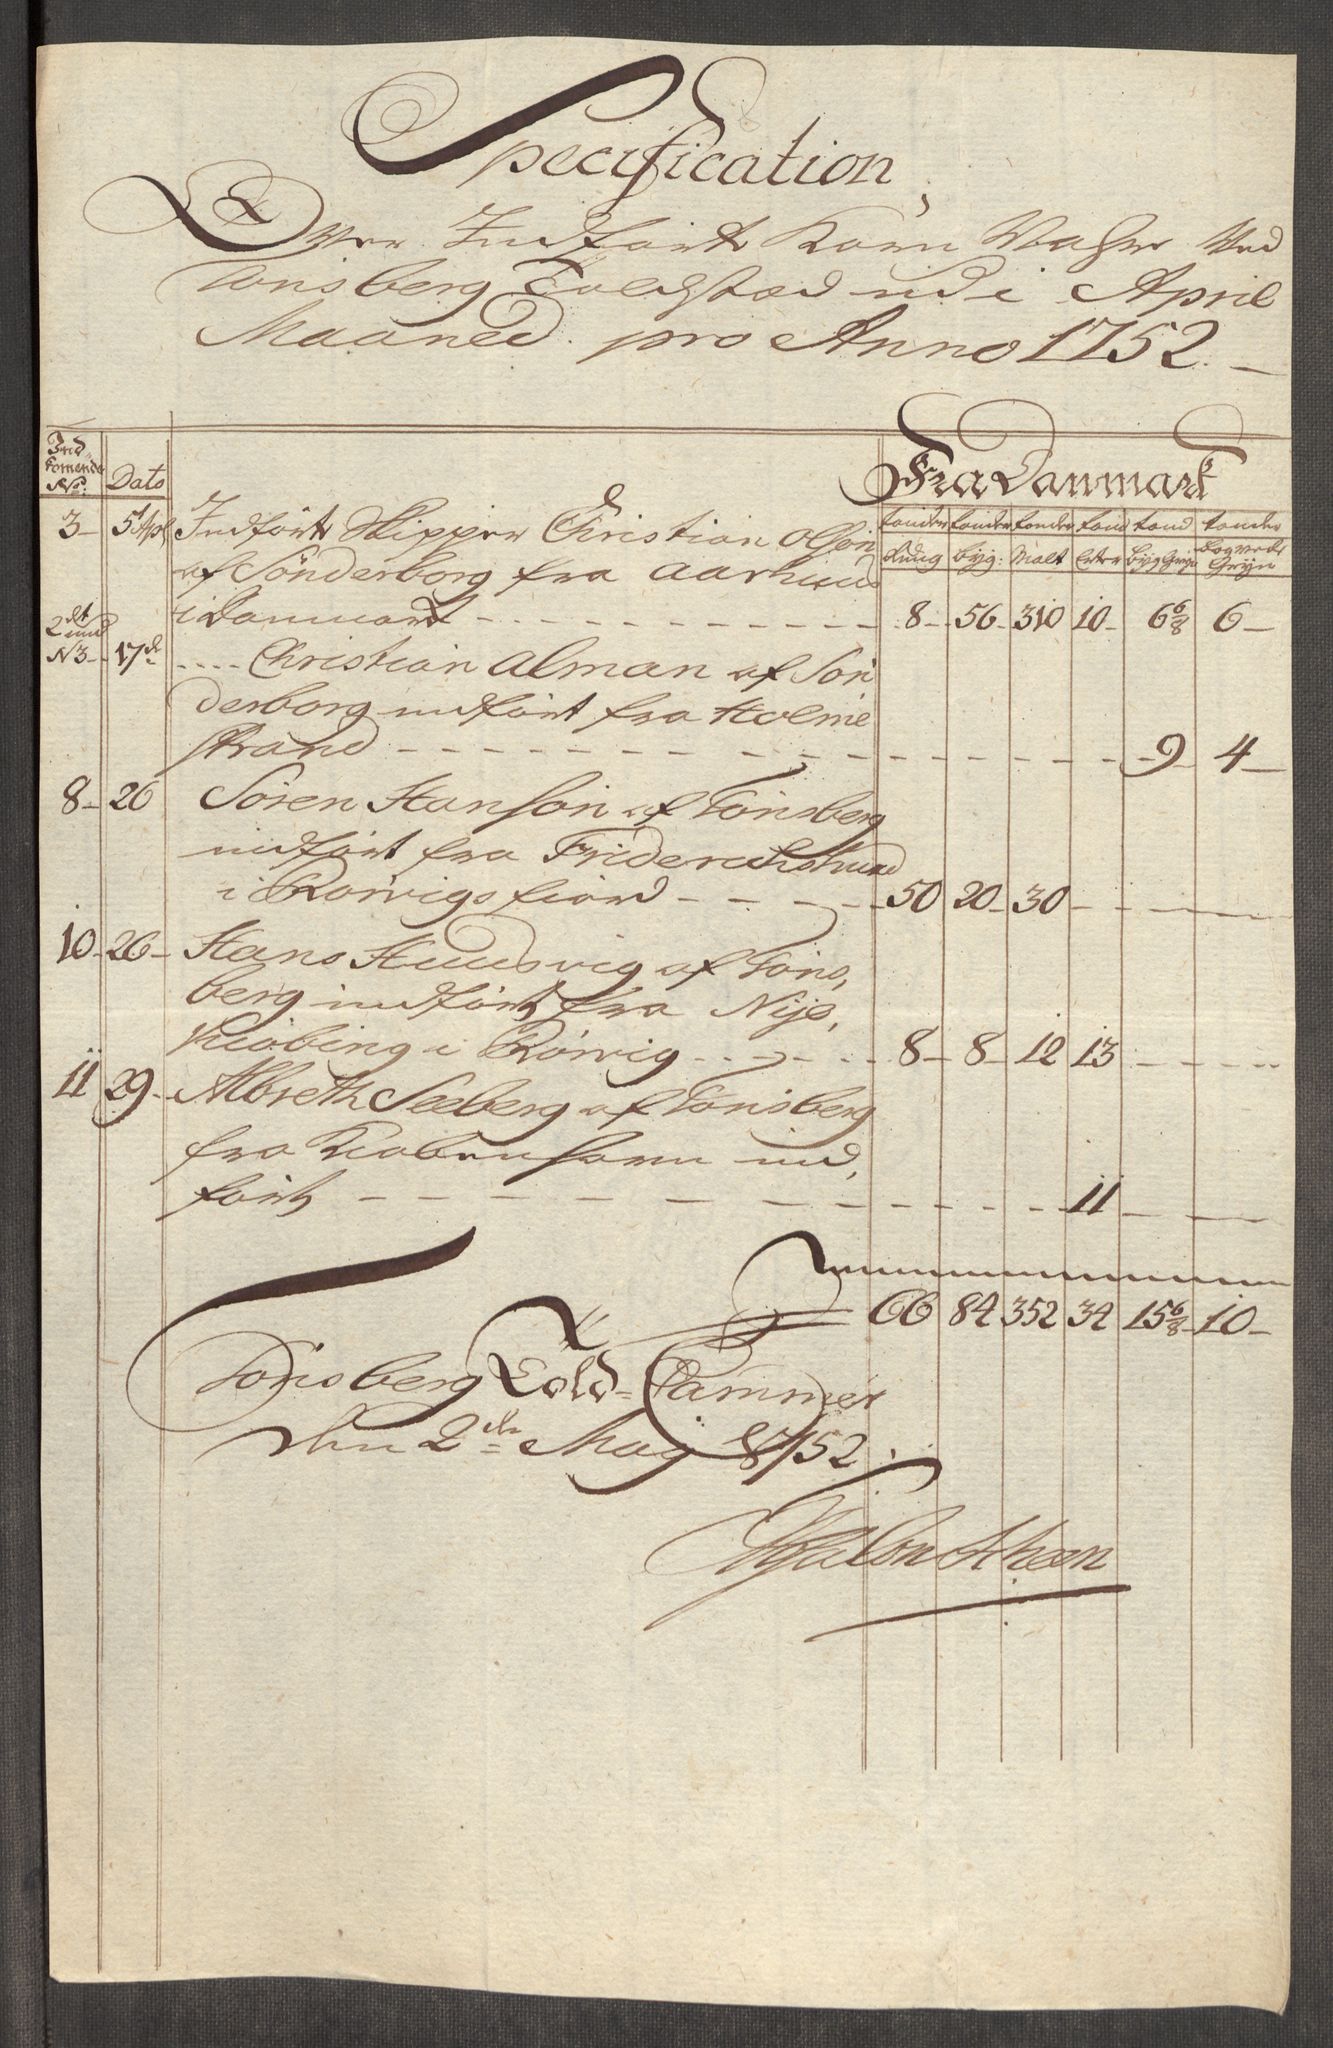 Specification
Over Indført Korn Vahre Ved
Tønsberg Toldsted udi April
Maaned pro Anno 1752.
Ind
komende
No:
Dato
Fra Danmark
tønder tønder tønder tønd tønd tønder
Rug byg: Malt Erter byg Gryn bogvede Gryn
3 - 5t Apl Indført Skipper Christian Olsøn
af Sønderborg fra Aarhuus
i Danmark - 8 - 56 - 310 10 - 6 6/8 6 -
2det und
N 3 - 17de .... Christian Alman af Søn
derborg indført fra Holme
strand - 9 - 4 -
8 - 26 Søren Hansøn af Tønsberg
indført fra Friderichsund
i Rørvigs fiord - 50 20 - 30 -
10 - 26 - Hans Huusvig af Tøns,
berg indført fra Nije,
Kiøbing i Rørvig - 8 - 8 - 12 13 -
11 29 - Albreth Seeberg af Tønsberg
fra Kiøbenhavn ind,
ført - 11 -
66 84 352 34 15 6/8 - 10 -
Tønsberg Told-Cammer
den 2de May 1752.